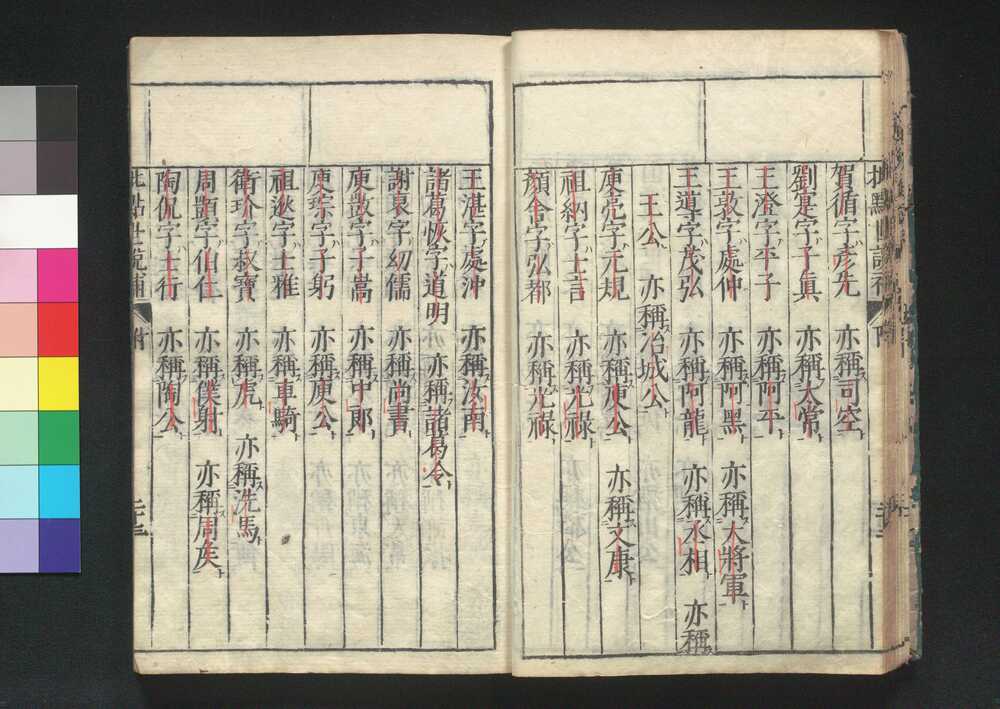 賀循字彥先 亦稱司空
劉寔字子真 亦稱太常
王澄字平子 亦稱阿平
王敦字處仲 亦稱阿黑 亦稱大將軍
王道字茂弘 亦稱阿龍 亦稱丞相 亦稱
王公 亦稱冶城公
庾亮字元規 亦稱庾公 亦稱文康
祖納字士言 亦稱光祿
顏含字弘都 亦稱光祿
王湛字處沖 亦稱汝南
諸葛恢字道明 亦稱諸葛令
謝裒字幼儒 亦稱尚書
庾敳字子嵩 亦稱中郎
庾琮字子躬 亦稱庾公
祖逖字士雅 亦稱車騎
衛玠字叔寶 亦稱虎 亦稱洗馬
周顗字伯仁 亦稱僕射 亦稱周侯
陶侃字士行 亦稱陶公